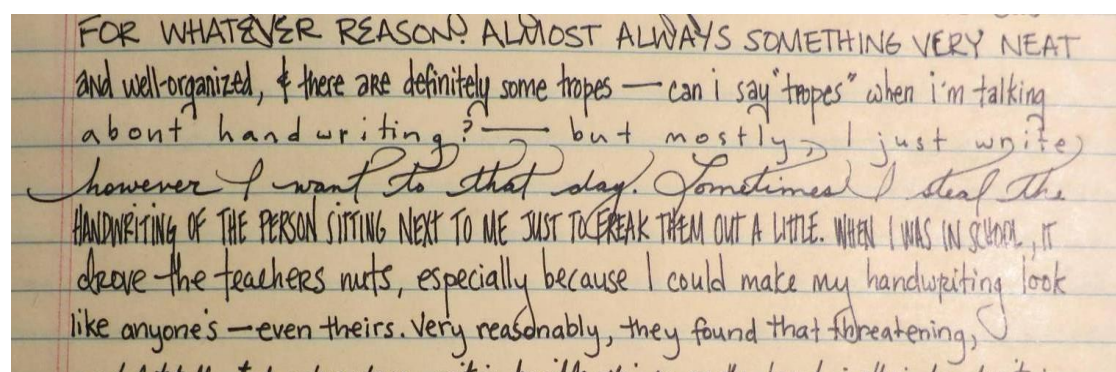 FOR WHATEVER REASON? ALMOST ALWAYS SOMETHING VERY NEAT
and well-organized, & there are definitely some tropes — can i say "tropes" when i'm talking
about handwriting? — but mostly, I just write
however I want to that day. Sometimes I steal the
HANDWRITING OF THE PERSON SITTING NEXT TO ME JUST TO FREAK THEM OUT A LITTLE. WHEN I WAS IN SCHOOL, IT
drove the teachers nuts, especially because I could make my handwriting look
like anyone's — even theirs. Very reasonably, they found that threatening,